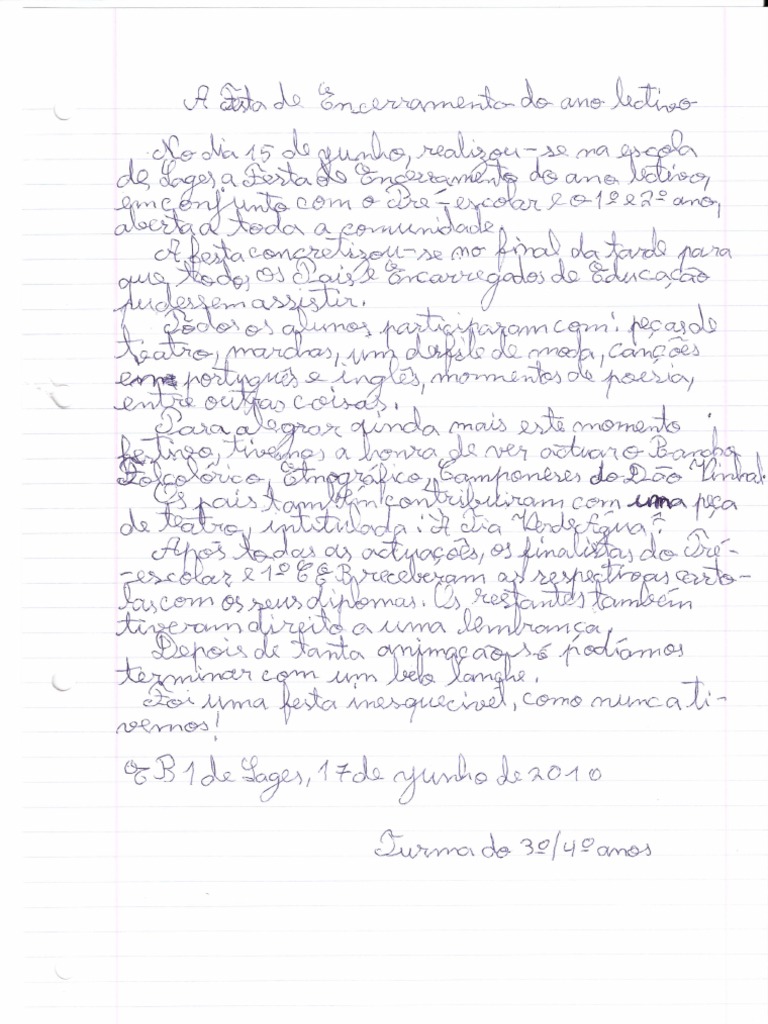 A Festa de Encerramento do ano lectivo
No dia 15 de junho, realizou-se na escola
de Lages a Festa de Encerramento do ano lectivo,
em conjunto com o Pré-escolar e o 1º e 2º ano,
aberta a toda a comunidade.
A festa concretizou-se no final da tarde para
que todos os Pais e Encarregados de Educação
pudessem assistir.
Todos os alunos participaram com: peças de
teatro, marchas, um desfile de moda, canções
em português e inglês, mommentos de poesia,
entre outras coisas.
Para alegrar ainda mais este momento
festivo, tivemos a honra de ver actuar o Rancho
Folcolórico, Etnográfico, Camponeses do Dão Pinhal.
Os pais também contribuíram com uma peça
de teatro, intitulada: "A Tia Verde Água".
Após todas as actuações, os finalistas do Pré-
-escolar e 1º CEB receberam as respectivas carto-
las com os seus diplomas. Os restantes também
tiveram direito a uma lembrança.
Depois de tanta animação só podíamos
terminar com um belo lanche.
Foi uma festa inesquecível, como nunca ti-
vemos!
EB1 de Lages, 17 de junho de 2010
Turma do 3º/4º anos